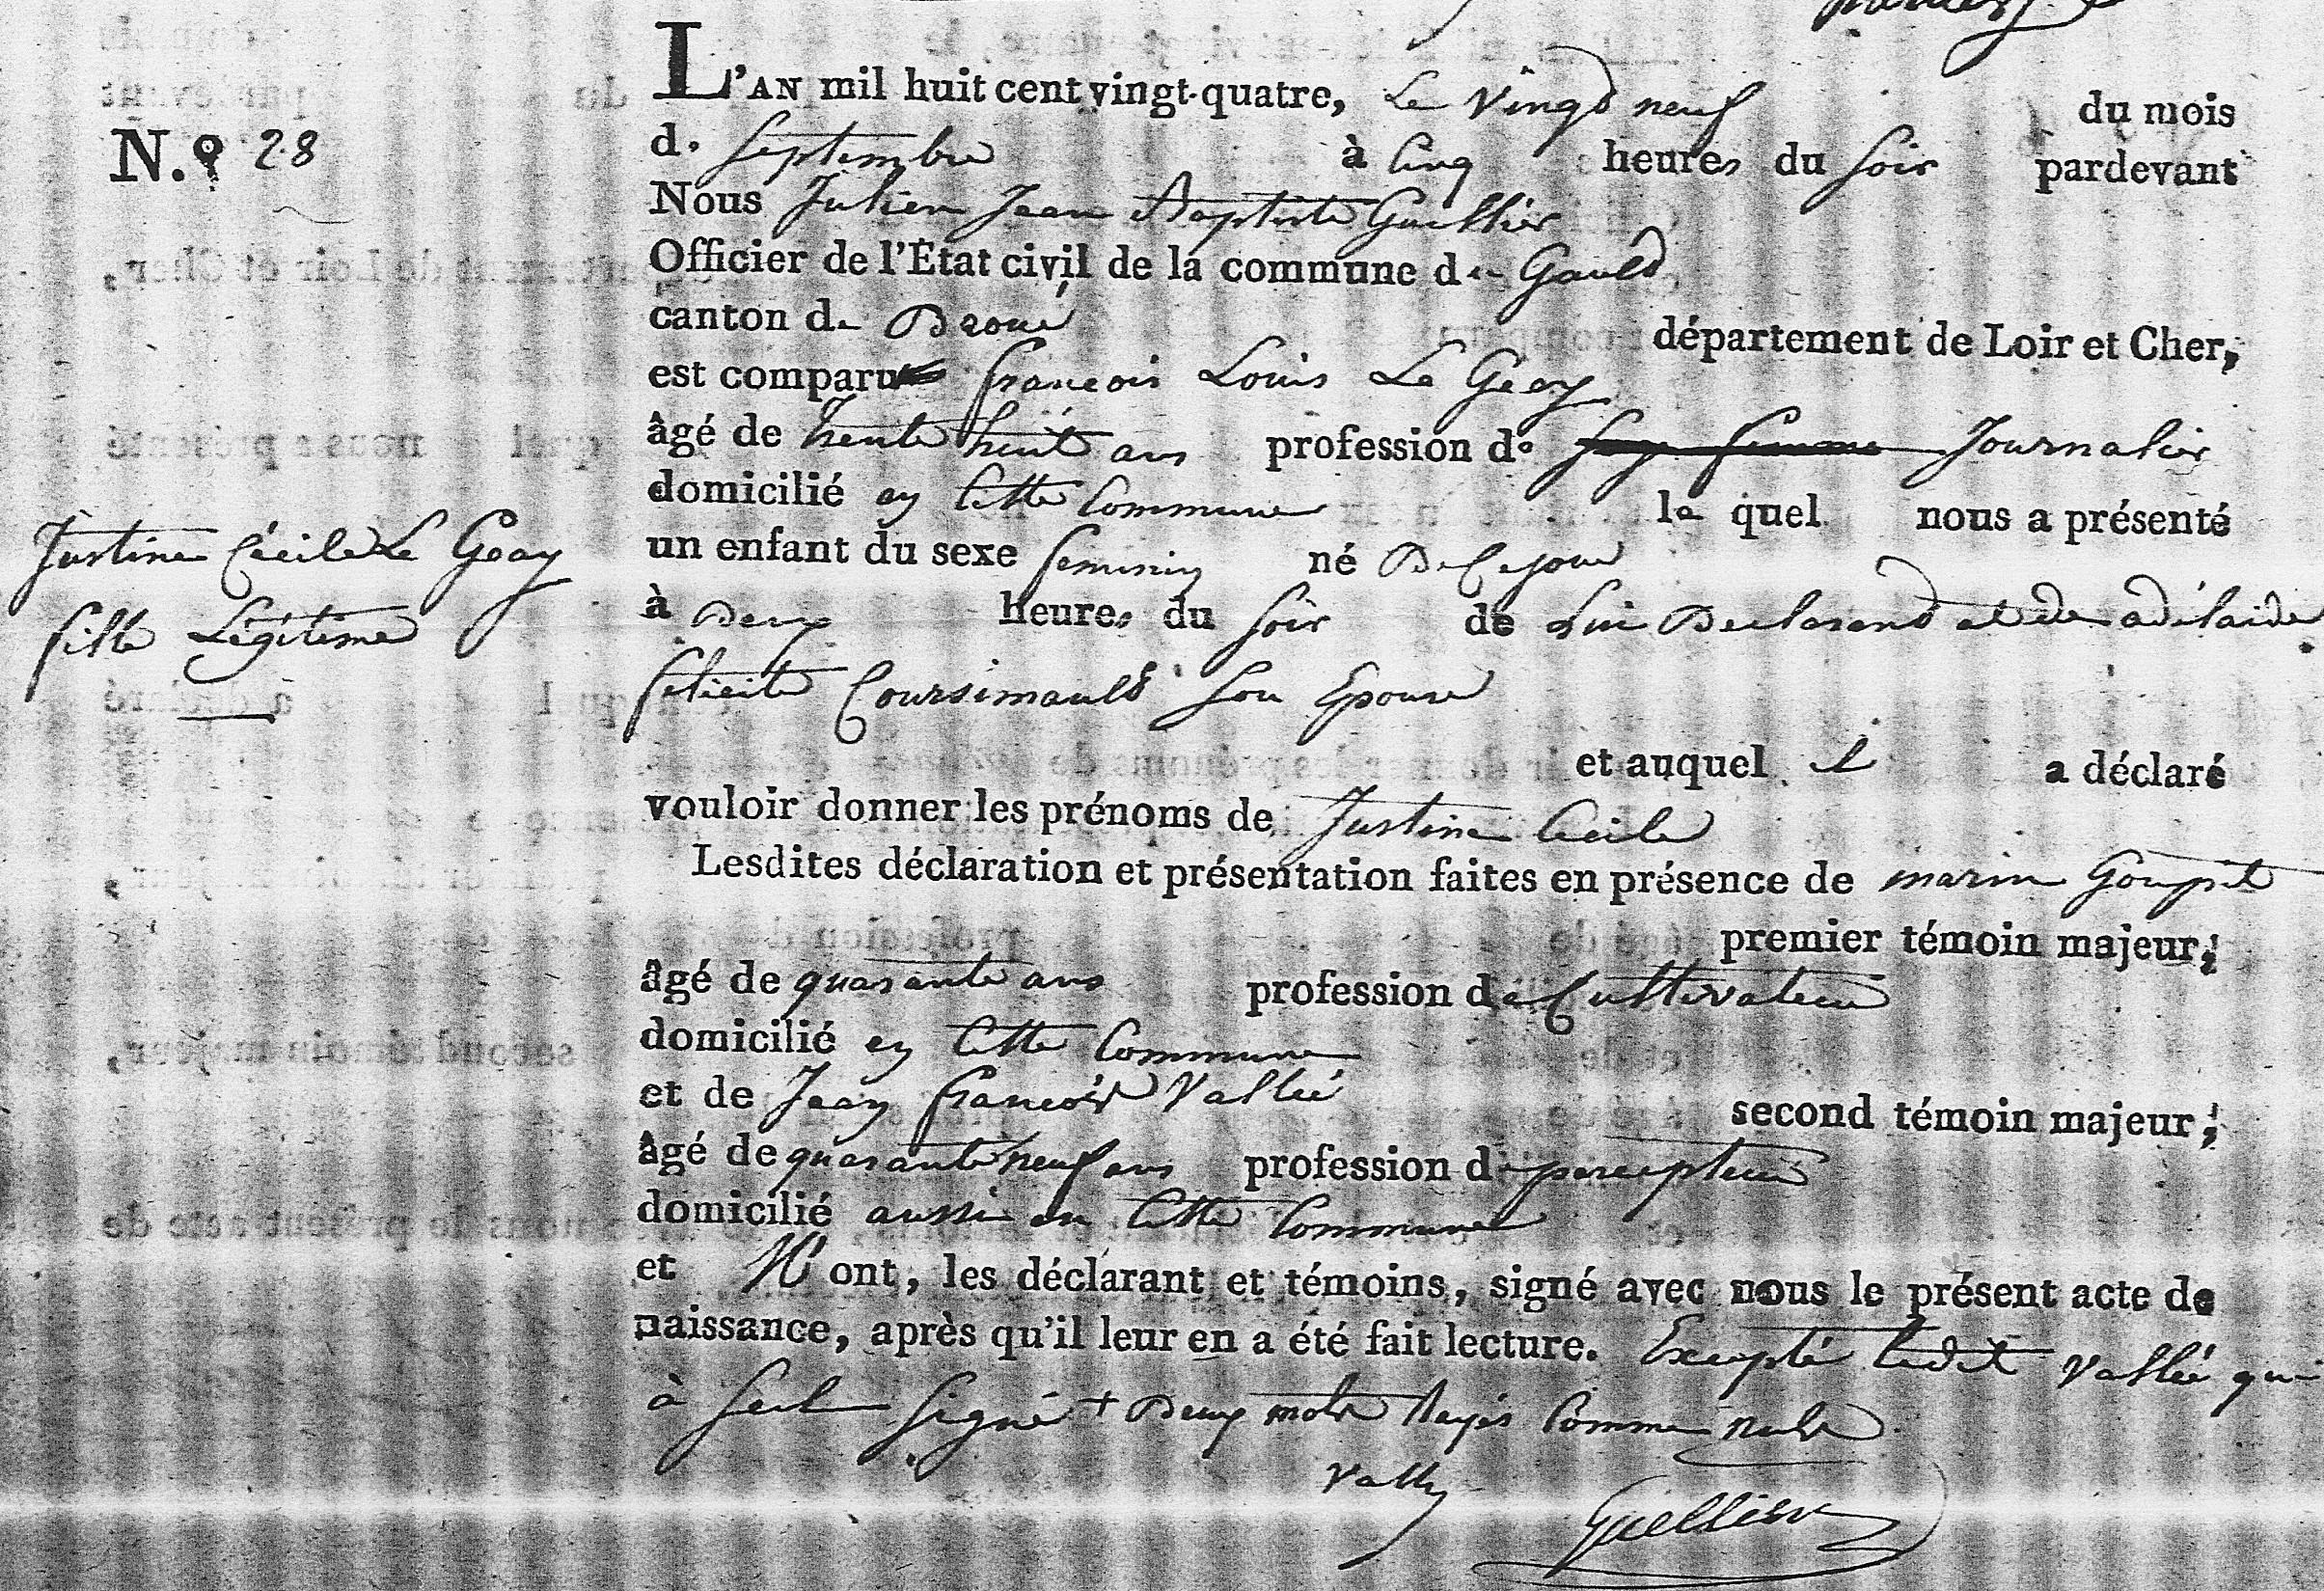 L'AN mil huit cent vingt-quatre, Le Vingt neuf du mois
d. Septembre à Cinq heures du Soir pardevant
N.º 28
Nous Julien Jean Baptiste Guellier
Officier de l'État civil de la commune du Gault
canton de Droué département de Loir et Cher,
est comparu francois Louis Le Geay
âgé de trente huit ans profession de sage femme Journalier
domicilié en Cette Commune le quel nous a présenté
un enfant du sexe feminin né De Ce jour
Justine Cécile Le Geay
fille Légitime
à Deux heures du Soir de Lui Declarant et de adélaide
félicité Coursimault Son Epouse
et auquel il a déclaré
vouloir donner les prénoms de Justine Cecile
Lesdites déclaration et présentation faites en présence de marin Goupil
premier témoin majeur,
âgé de quarante ans profession de Cultivateur
domicilié en Cette Commune
et de Jean francois Vallée second témoin majeur,
âgé de quarante neuf ans profession de percepteur
domicilié aussi en Cette Commune
et N'ont, les déclarant et témoins, signé avec nous le présent acte de
naissance, après qu'il leur en a été fait lecture. Excepté Ledit Vallée qui
à Seul Signé + Deux mots Rayés Comme nuls
Vallée
Guellier